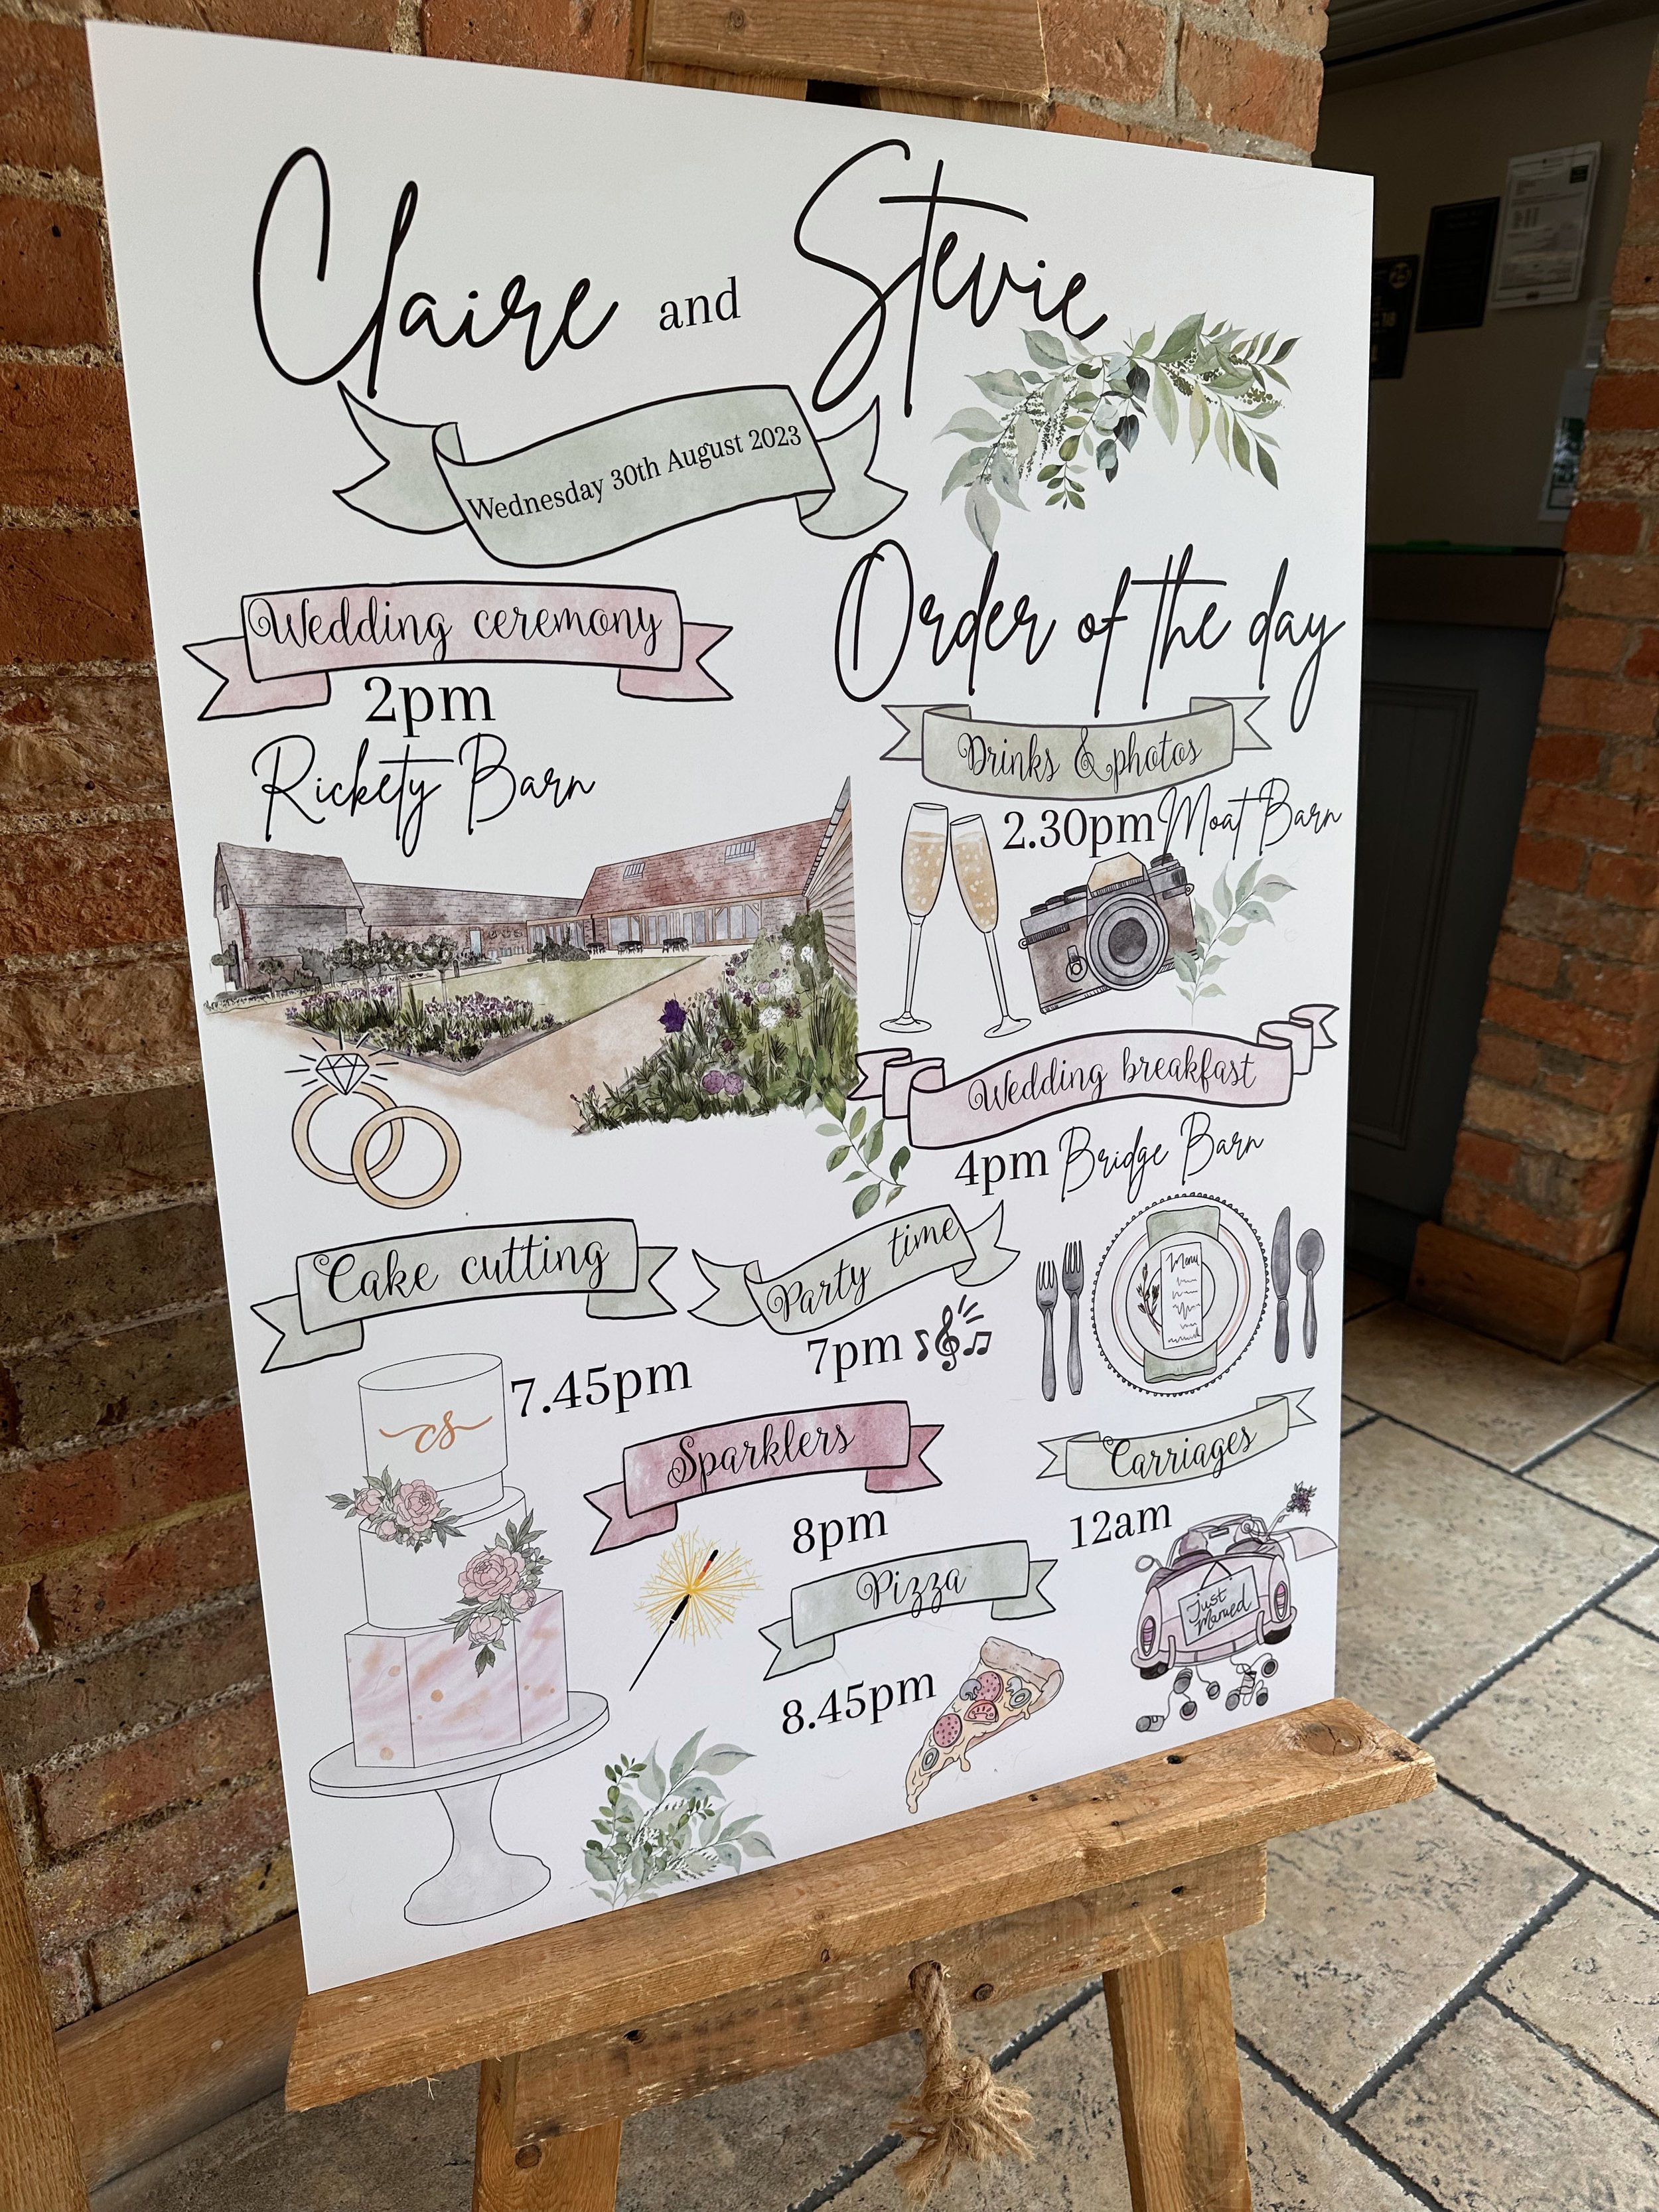 Claire and Stevie
Wednesday 30th August 2023
Order of the day
Wedding ceremony
2pm
Rickety Barn
Drinks & photos
2.30pm Moat Barn
Wedding breakfast
4pm Bridge Barn
Menu
Party time
7pm
Cake cutting
7.45pm
cs
Sparklers
8pm
Pizza
8.45pm
Carriages
12am
Just
Married